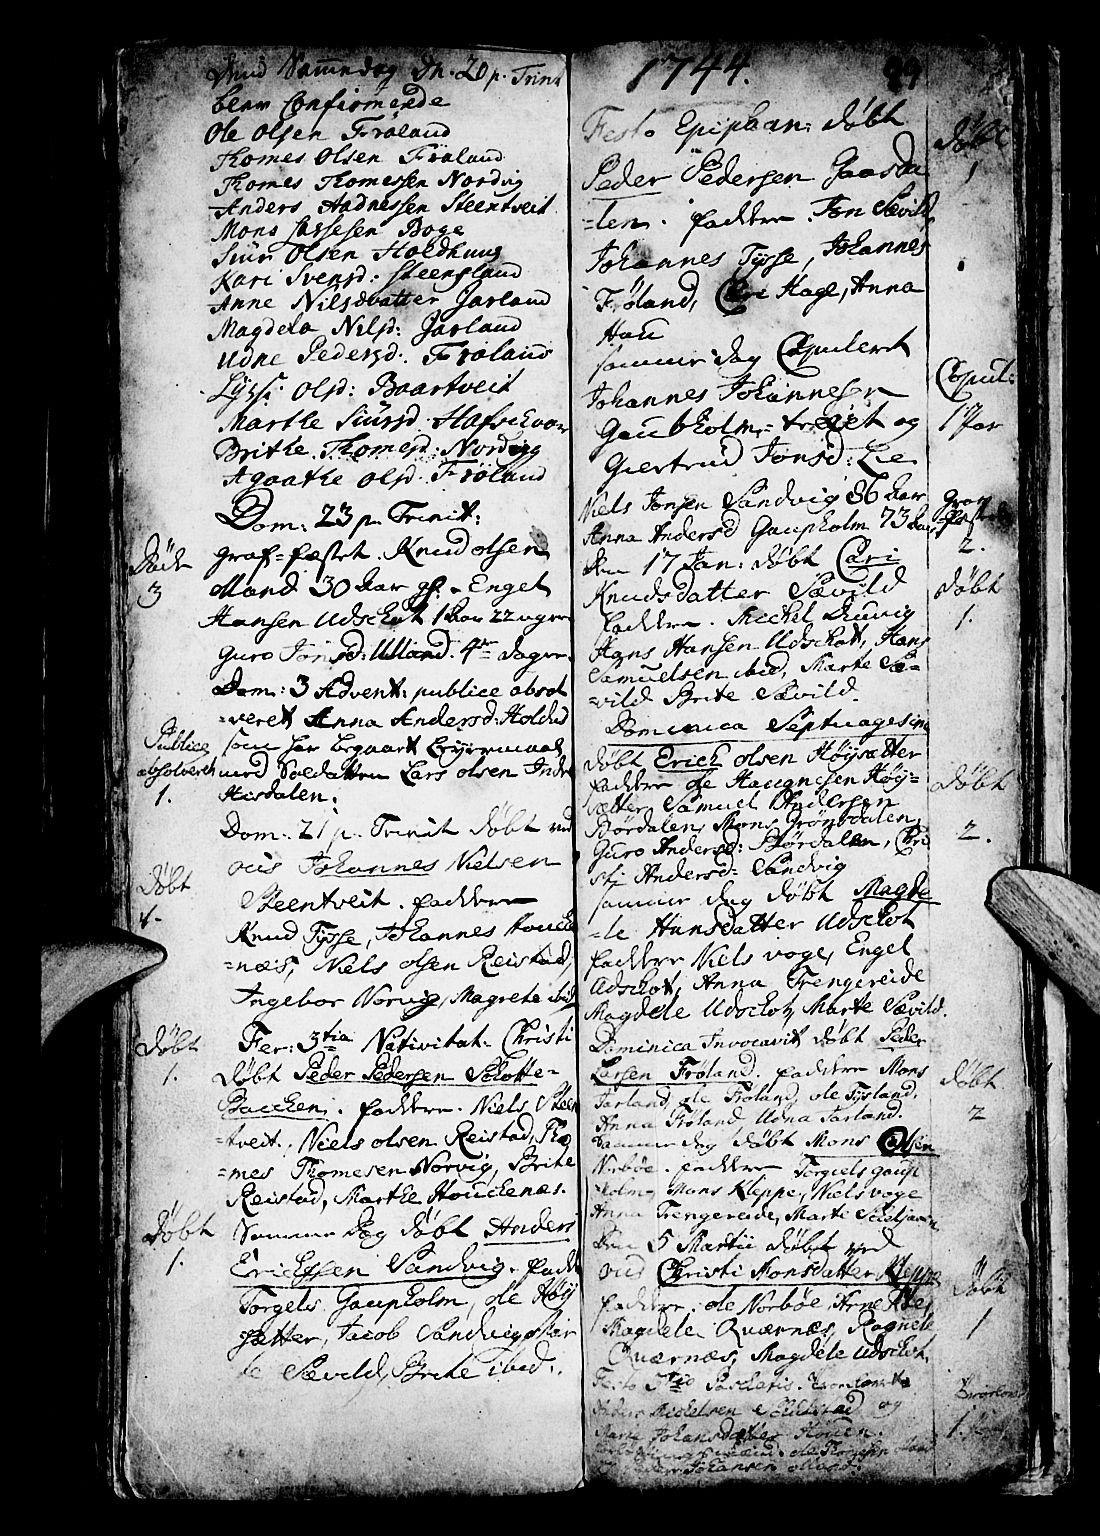 Sammedag Dn. 20 p. Trinit
blev Confirmerede
Ole Olsen Frøland
Thomes Olsen Frøland
Thomes Thomessen Nordvig
Anders Aadnessen Steentveit
Mons Lassesen Boge
Siur Olsen Holdhuus
Kari Svensd: Steensland
Anne Nilsdatter Jarland
Magdela Nilsd: Jarland
Udne Pedersd. Frøland
Olsd: Baartveit
Marthe Siursd. Hafvichvor
Brithe Thomesd: Nordvig
Agaathe Olsd. Frøland
Dom: 23 p. Trinit:
Døde
3
graf-fæstet. Knud Olsen
Øland 30 aar gl. Engel
Hansen Udschot 1 22 uger
Guro Jonsd: Ulland. 4re dage
Dom: 3 Advent: publice absol
Publice
absolveret
1.
=veret Anna Andersd: Holdhu
som har begaaet Leyermaal
med Soldatten Lars Olsen Indre
Hisdalen.
Dom: 21 p. Trinit døbt ved
Døbt
1.
Johannes Nielsen
Steentveit. faddere
Knud Tysse, Johannes Houche
=næs, Niels Olsen Reistad,
Ingebor Norvig, Magrete ibid
Døbt
1.
Fer: 3tia Nativitat. Christi
døbt Peder Pedersen Schotte-
Bacchen. faddere. Niels Steen
tveit, Niels Olsen Reistad, Tho
=mes Thomesen Norvig, Brite
Reistad, Marthe Houchenæs.
Døbt
1.
Samme Dag døbt Anders
Erichssen Sandvig. fadd
Torgels Gaupholm, Ole Høy
sætter, Jacob Sandvig,
Sævild, Brite ibid.
1744.
99
Festo Epiphan: døbt
Døbt
1
Peder Pedersen Gaasda
=len. faddere. Jon Sævild,
Johannes Tysse, Johannes
Frøland, Cari Hage, Anna
Hau
samme dag Copuleret
Copul:
1 Par
Johannes Johannesen
Gaubholm-træet og
Giertrud Jonsd: Lie
Niels Jonsen Sandvig 86 aar
Anna Andersd Gaupholm 73 aar
Grav
fæstede
2.
den 17 Jan: døbt Cari
Døbt
1.
Knudsdatter Sævild
faddere. Michel Drevvig
Hans Hansen Udschot, Hans
Samuelsen ibid, Marte Sæ-
vild Brite Sævild.
Dominica Septuagesima
døbt Erich Olsen Høysætter
Døbt
2.
faddere Ole Haugnesen Høy=
sætter, Samuel Andersen
Børdalen, Mons Grønsdalen,
Guro Andersd: Børdalen, Chri
sti Andersd: Sandvig
samme dag døbt Magde
=le Hansdatter Udschot
faddere Niels Voge, Engel
Udschot, Anna Trengereide
Magdele Udschot, Marte Sævild.
Dominica Invocavit døbt Peder
Døbt
2
Larsen Frøland. faddere Mons
Jarland, Ole Frøland, Ole Tysland,
Anna Frøland Udna Jarland.
Samme dag døbt Mons Olsen
Norbøe. faddere Torgiels Gaup
holm, Mons Kleppe, Niels Voge
Anna Trengereide, Marte
Den 5 Martii døbt ved
Døbt
1
Christi Monsdatter Kleppe
faddere. Ole Norbøe, Arne
Magdele Quærnæs, Ragnele
Quærnæs, Magdele Udschot.
Festo 3tio Paschatis.
1.
Anders Michelsen og
Marte Johansdatter Houen.